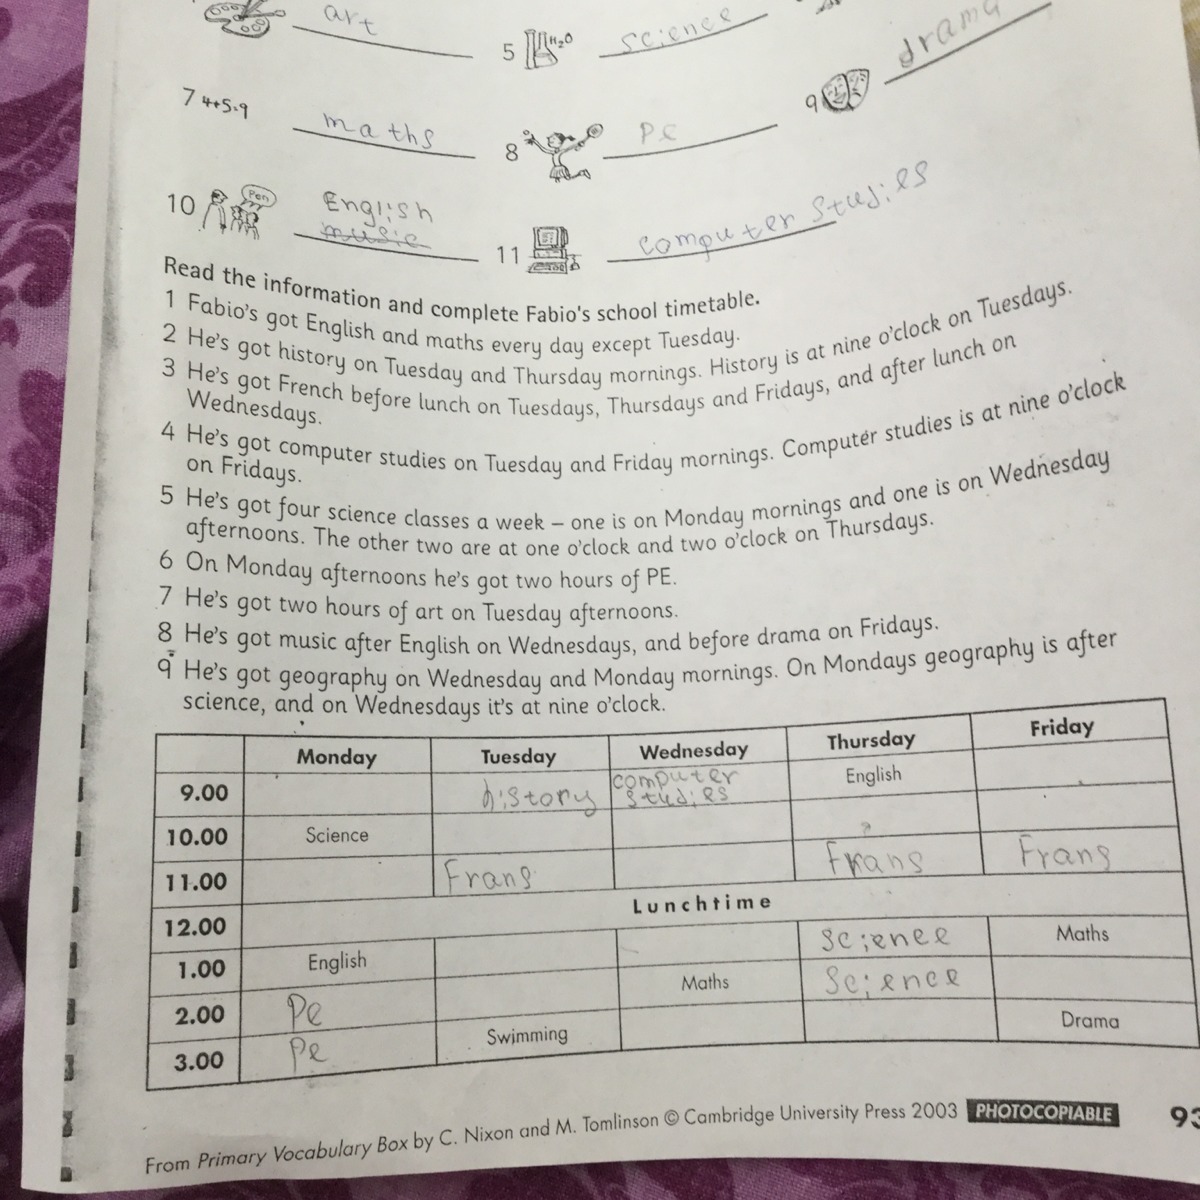 art
5 H₂O science
drama
7 4+5=9 maths
8 Pe
9
10 Pen English
music
11 computer studies
Read the information and complete Fabio's school timetable.
1 Fabio's got English and maths every day except Tuesday.
2 He's got history on Tuesday and Thursday mornings. History is at nine o'clock on Tuesdays.
3 He's got French before lunch on Tuesdays, Thursdays and Fridays, and after lunch on
Wednesdays.
4 He's got computer studies on Tuesday and Friday mornings. Computer studies is at nine o'clock
on Fridays.
5 He's got four science classes a week – one is on Monday mornings and one is on Wednesday
afternoons. The other two are at one o'clock and two o'clock on Thursdays.
6 On Monday afternoons he's got two hours of PE.
7 He's got two hours of art on Tuesday afternoons.
8 He's got music after English on Wednesdays, and before drama on Fridays.
9 He's got geography on Wednesday and Monday mornings. On Mondays geography is after
science, and on Wednesdays it's at nine o'clock.
Monday Tuesday Wednesday Thursday Friday
9.00 history computer studies English
10.00 Science ?
11.00 Frans Frans Frans
12.00 Lunchtime
1.00 English science Maths
2.00 Pe Maths Science
3.00 Pe Swimming Drama
From Primary Vocabulary Box by C. Nixon and M. Tomlinson © Cambridge University Press 2003 PHOTOCOPIABLE 93